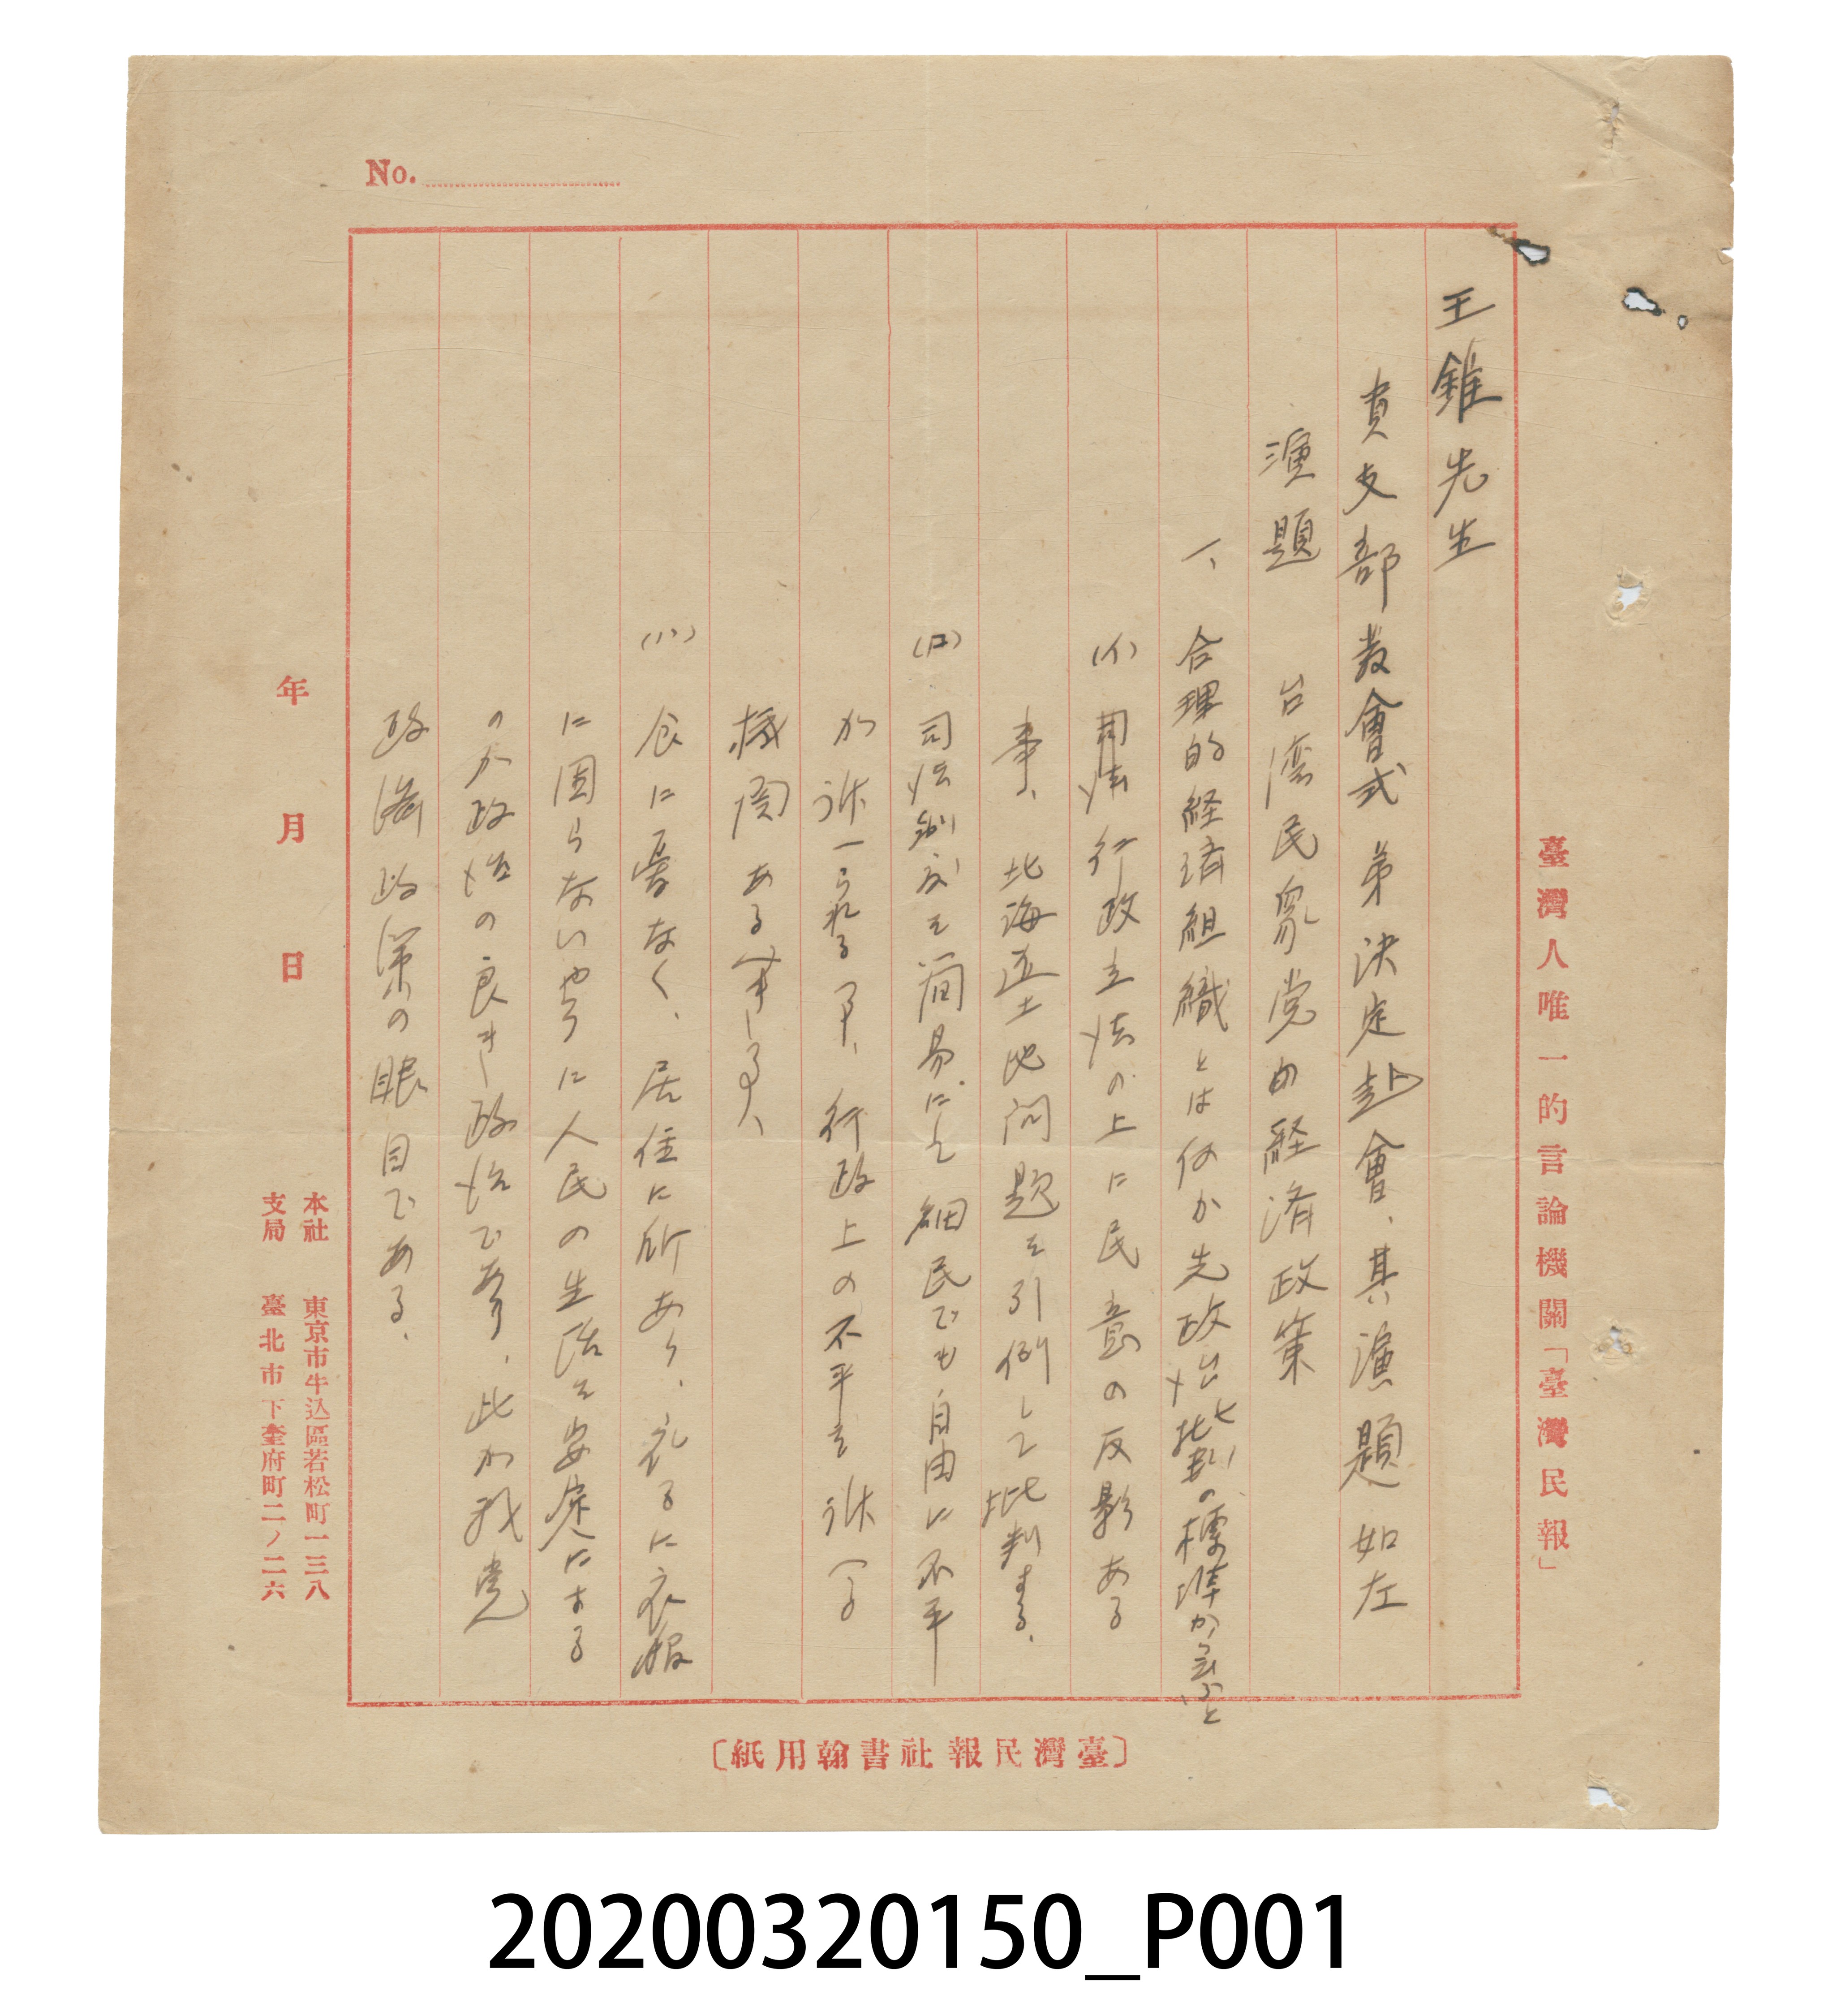 No.
臺灣人唯一的言論機關「臺灣民報」
王錐先生
貴支部發會式弟決定赴會、其演題如左
演題 台湾民衆党の経済政策
一、合理的経済組織とは何か先政治批判の標準から云ふと
(イ) 司法行政立法の上に民意の反影ある
事、北海道土地問題を引例して批判する、
(ロ) 司法制度を簡易にして細民でも自由に不平
が訴へられる事、行政上の不平を訴へる
機関ある
(ハ) 食に憂なく、居住に所あり、衣るに衣服
に困らないやうに人民の生活を安定にする
のが政治の良き政治であり、此が我党
経済政策の眼目である、
年 月 日
本社 東京市牛込區若松町一三八
支局 臺北市下奎府町二ノ二六
〔臺灣民報社書翰用紙〕
20200320150_P001